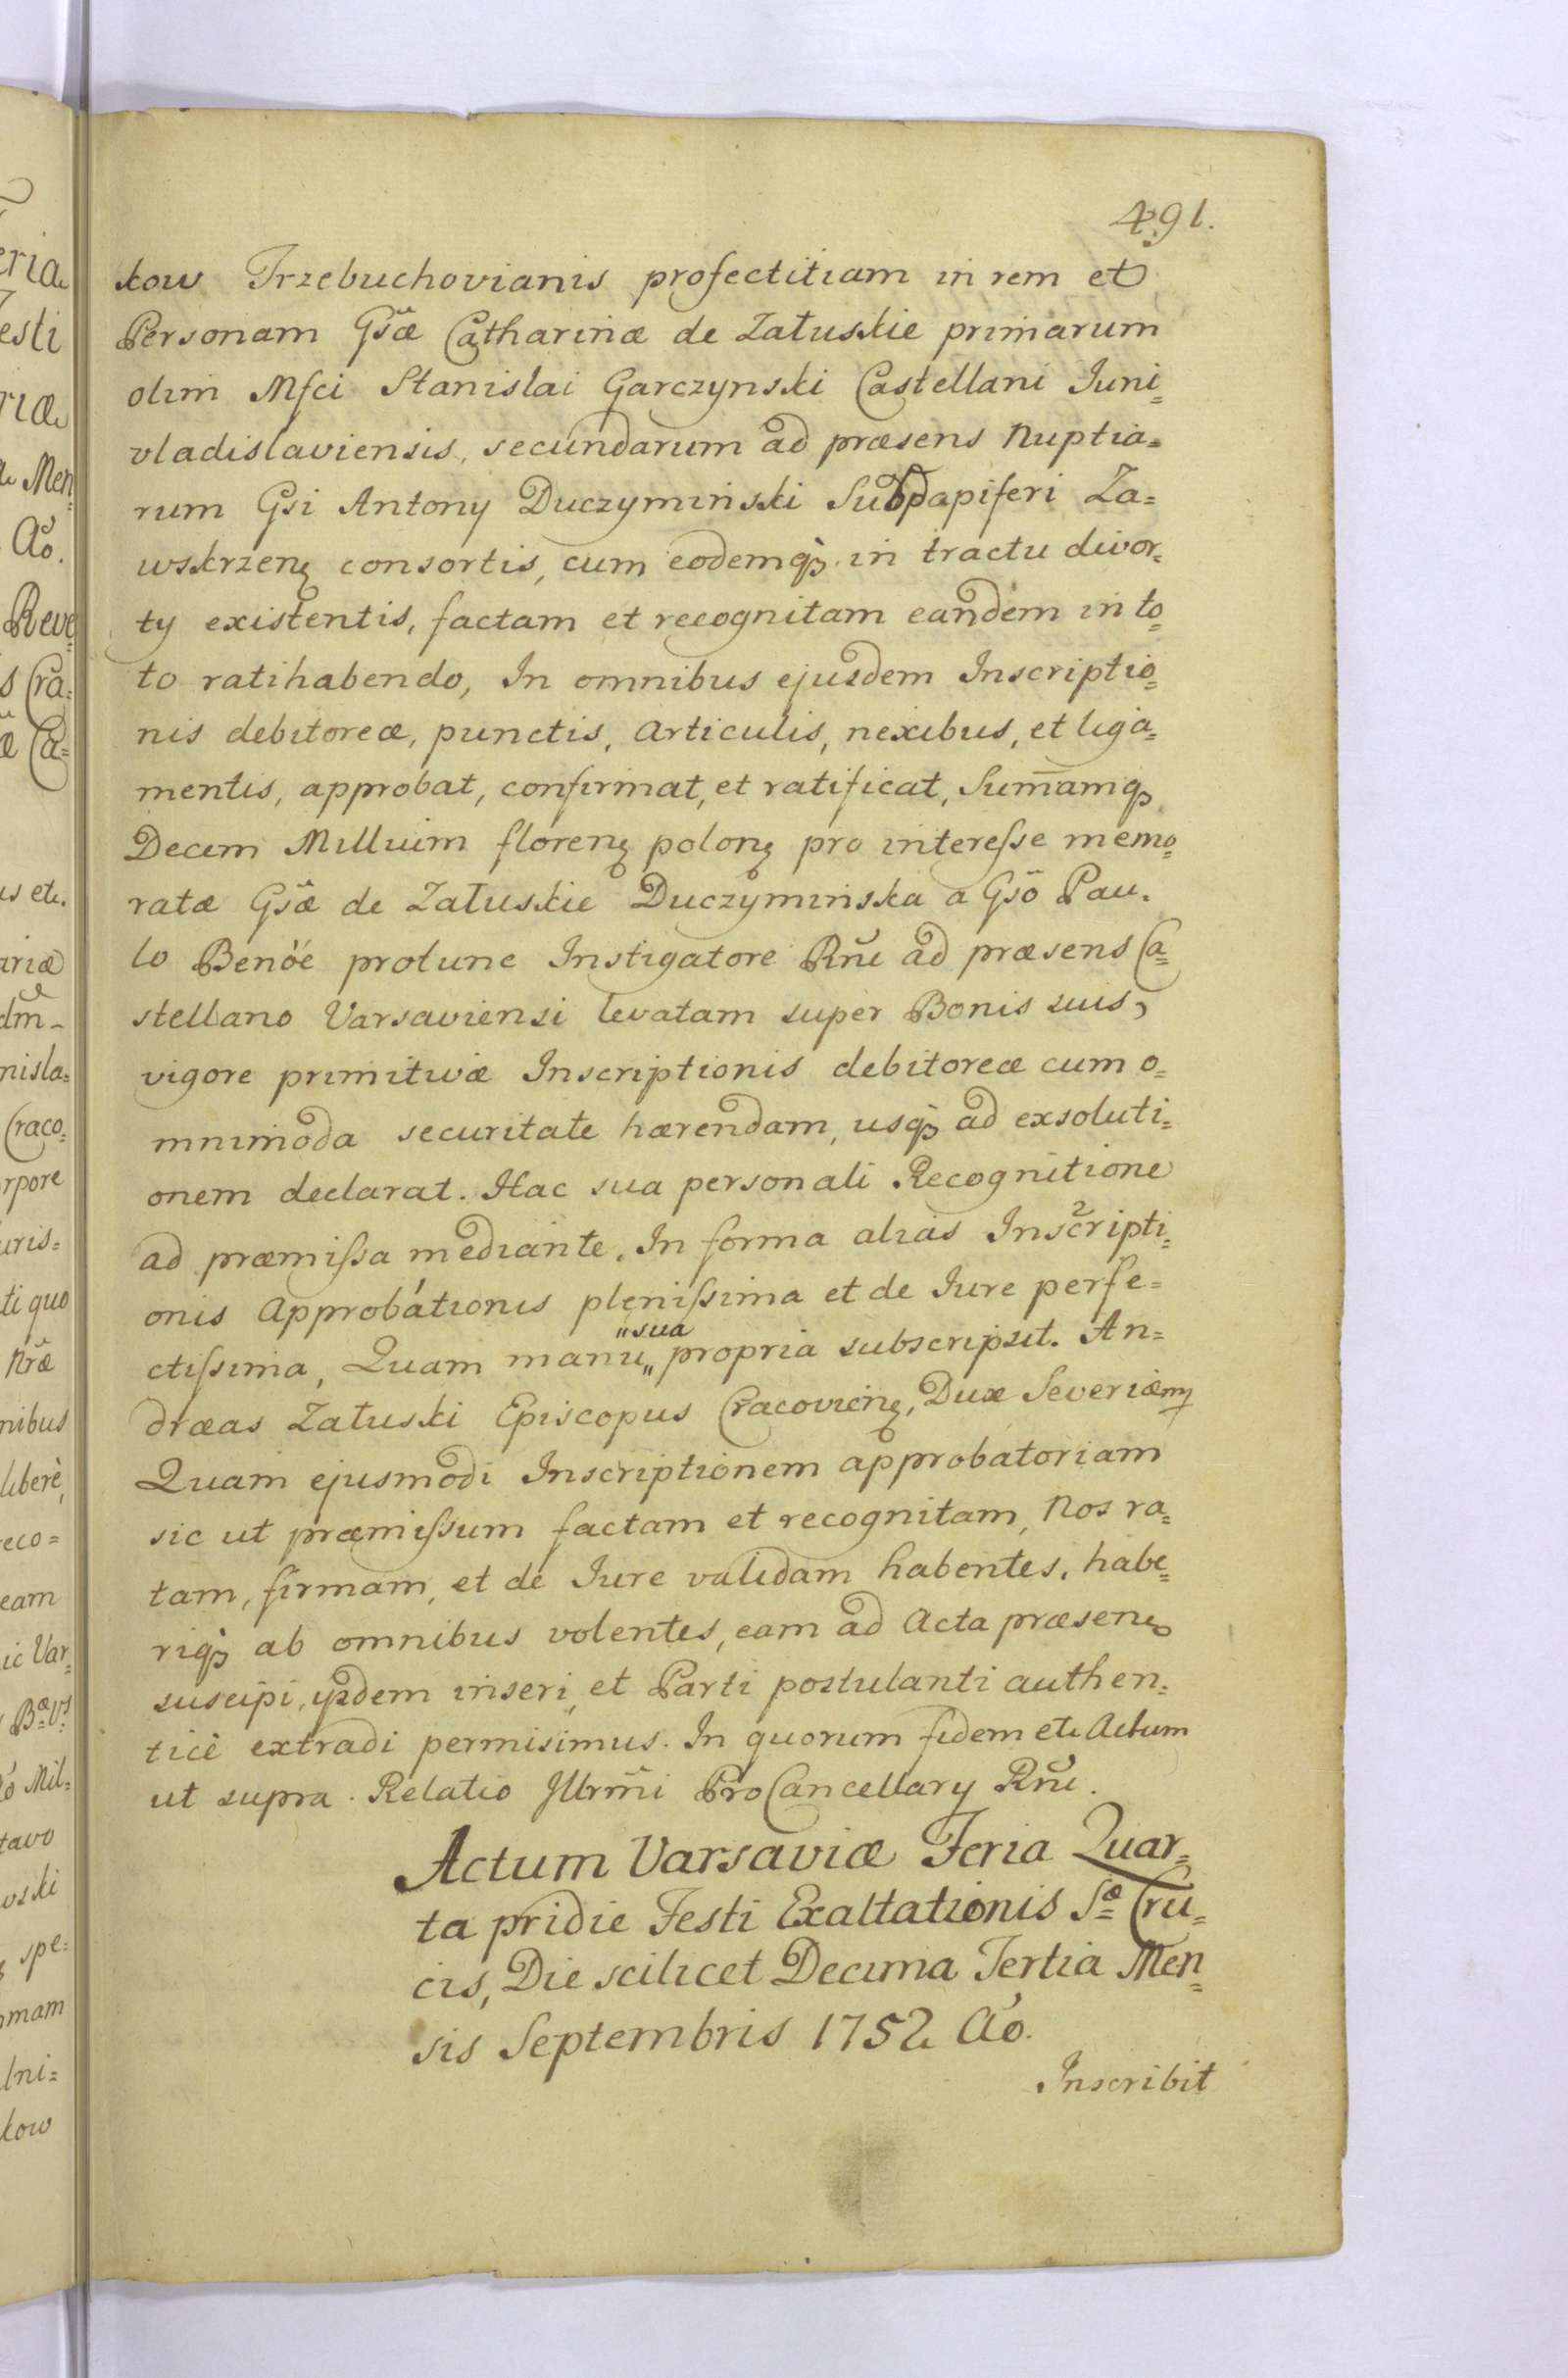 491.
kow Trzebuchovianis profectitiam in rem et
Personam Gsæ Catharinæ de Załuskie primarum
olim Mfci Stanislai Garczynski Castellani Juni=
vladislaviensis, secundarum ad præsens Nuptia=
rum Gsi Antonÿ Duczyminski Subdapiferi Za=
wskrzen consortis, cum eodemq in tractu divor=
tÿ existentis, factam et recognitam eandem in to=
to ratihabendo, In omnibus ejusdem Inscriptio=
nis debitoreæ, punctis, Articulis, nexibus, et liga=
mentis, approbat, confirmat, et ratificat, Sum̄amq
Decem Millium floren polon pro interesse memo=
ratæ Gsæ de Załuskie Duczyminska a Gso Pau=
lo Benöe protunc Instigatore Rñi ad præsens Ca=
stellano Varsaviensi levatam super Bonis suis,
vigore primitivæ Inscriptionis debitoreæ cum o=
mnimoda securitate hærendam, usq ad exsoluti=
onem declarat. Hac sua personali Recognitione
ad præmissa mediante. In forma alias Inscripti=
onis Approbationis plenissima et de Jure perfe=
ctissima, Quam manu „sua„ propria subscripsit. An=
dræas Załuski Episcopus Cracovien, Dux Severiæ mp
Quam ejusmodi Inscriptionem approbatoriam
sic ut præmissum factam et recognitam, Nos ra=
tam, firmam, et de Jure validam habentes, habe=
riq ab omnibus volentes, eam ad Acta præsen
suscipi, ÿsdem inseri, et Parti postulanti authen=
ticè extradi permisimus. In quorum fidem etc Actum
ut supra. Relatio Illrm̃i ProCancellarÿ Rñi.
Actum Varsaviæ Feria Quar=
ta pridie Festi Exaltationis Sæ Cru=
cis, Die scilicet Decima Tertia Men=
sis Septembris 1752 Ao.
Inscribit